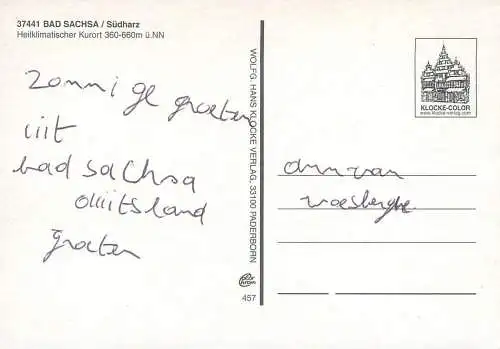 37441 BAD SACHSA / Südharz
Heilklimatischer Kurort 360-660m ü.NN
zonnige groeten
uit
bad sachsa
duitsland
groeten
WOLFG. HANS KLOCKE VERLAG, 33100 PADERBORN
457
KLOCKE-COLOR
www.klocke-verlag.com
ann van